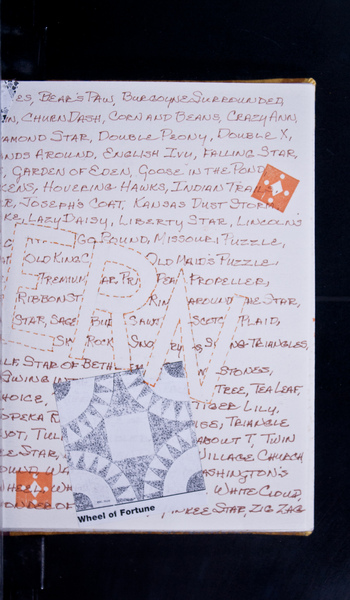 ES, BEAR'S PAW, BURGOYNE SURROUNDED
IN, CHURN DASH, CORN AND BEANS, CRAZY ANN,
AMOND STAR, DOUBLE PEONY, DOUBLE X,
NDS AROUND, ENGLISH IVY, FALLING STAR,
GARDEN OF EDEN, GOOSE IN THE POND
KENS, HOVERING HAWKS, INDIAN TRAIL
JOSEPH'S COAT, KANSAS DUST STORM
KE, LAZY DAISY, LIBERTY STAR, LINCOLN'S
POUND, MISSOURI PUZZLE,
OLD KING OLD MAID'S PUZZLE,
PREMIUM PROPELLER,
RIBBON ST AROUND THE STAR,
STAR, SAGE BU SAW SCOTC PLAID,
ROCK SNO SPRING TRIANGLES,
STAR OF BETH STONES,
SWING TREE, TEA LEAF,
HOICE, TIGER LILY,
OPEKA TRIANGLE
ABOUT T, TWIN
E STAR, VILLAGE CHURCH
OUND WA ASHINGTON'S
WHEEL WH WHITE CLOUD,
ONDER OF NKEE STAR, ZIG ZAG
ERN
Wheel of Fortune